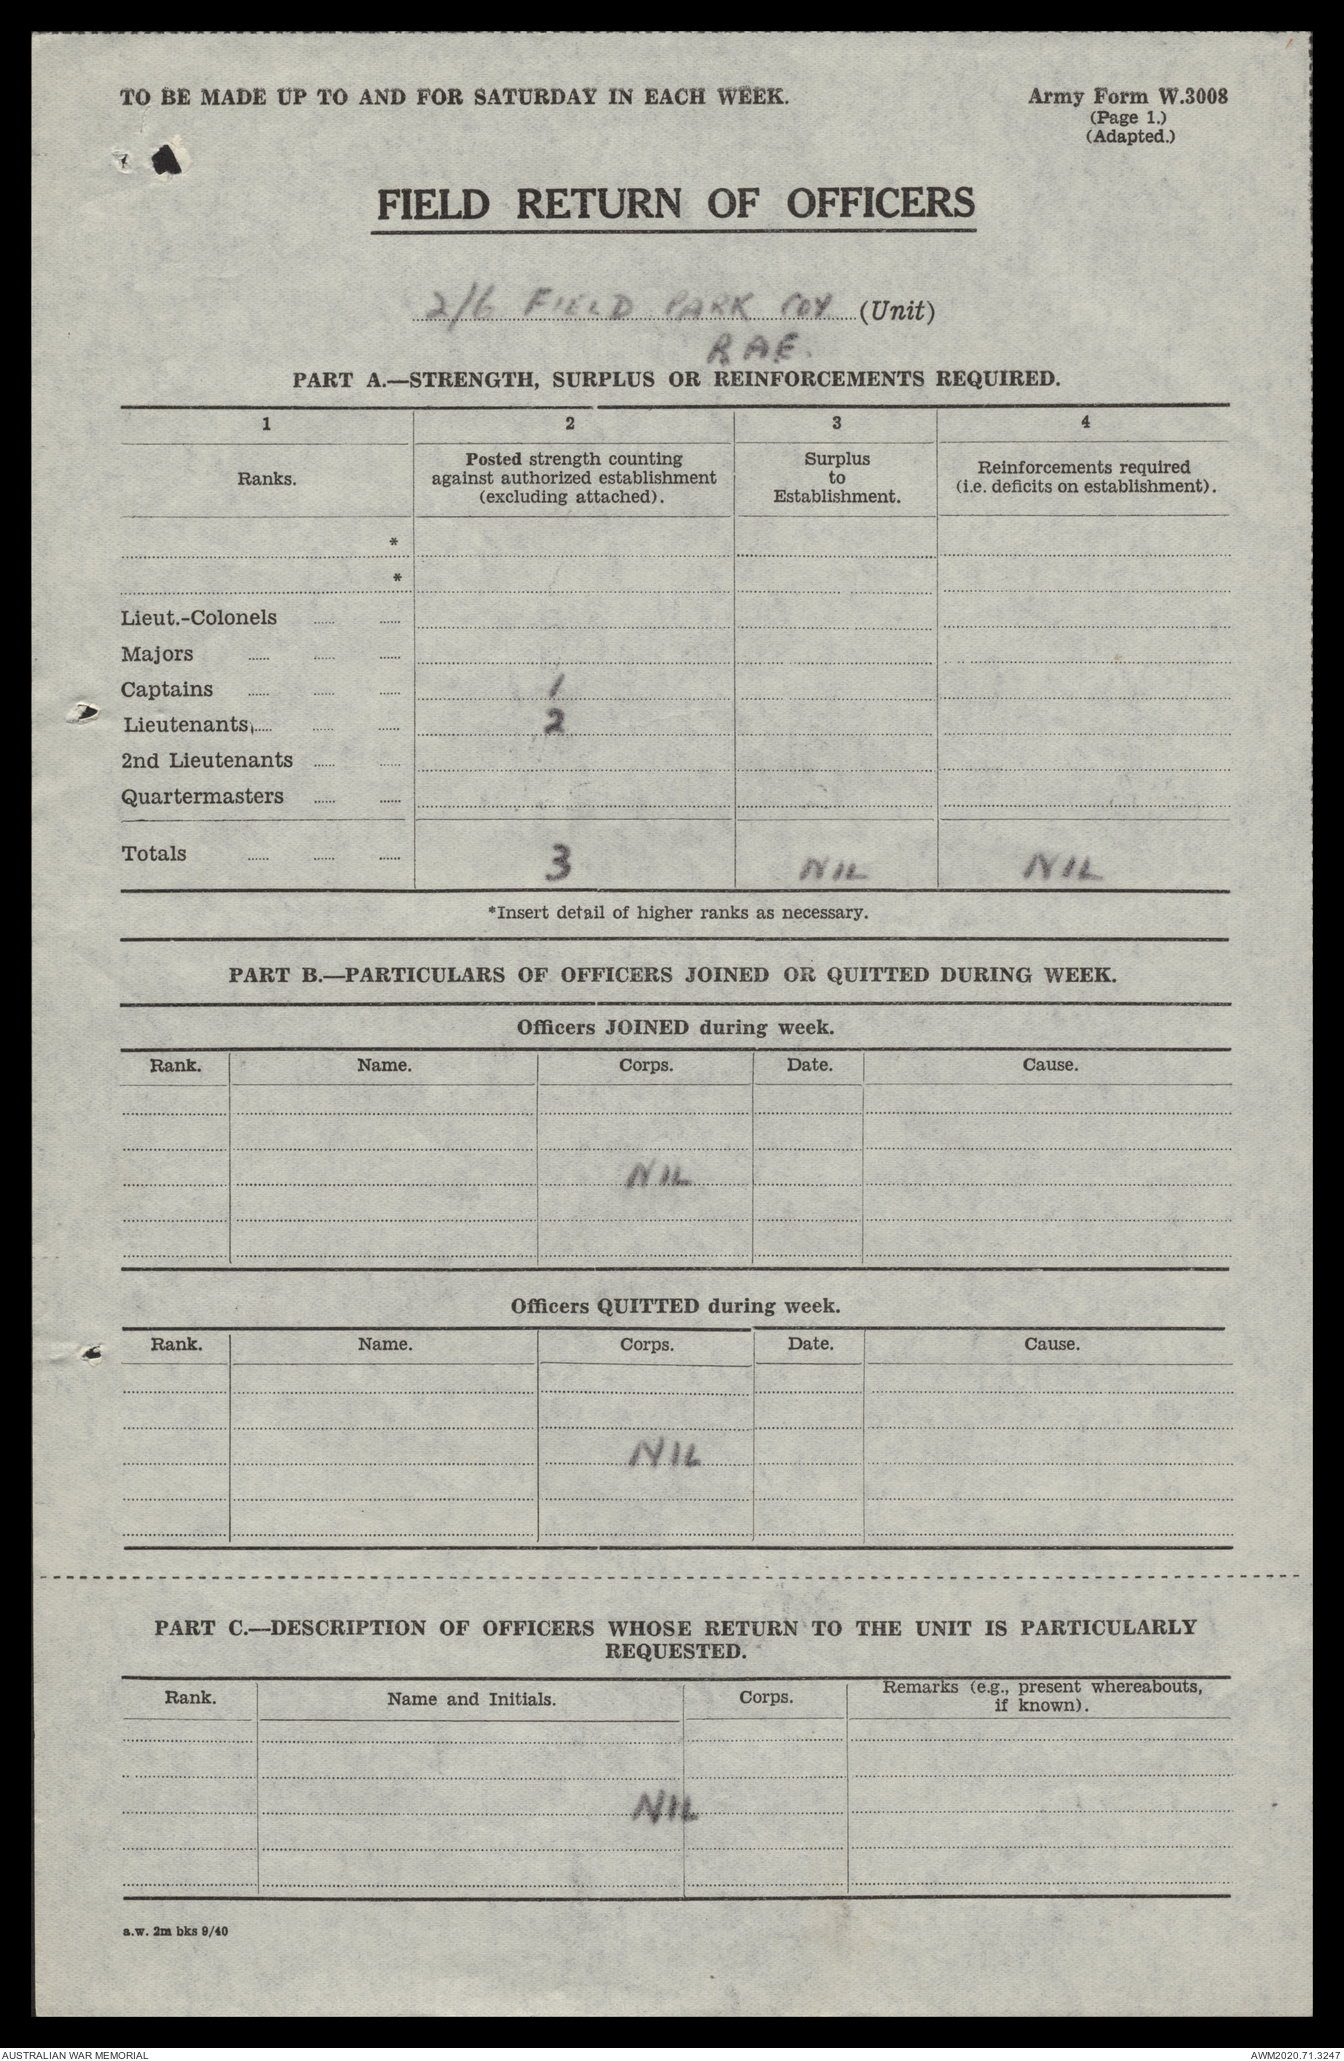 TO BE MADE UP TO AND FOR SATURDAY IN EACH WEEK.
Army Form W.3008
(Page 1.)
(Adapted.)
FIELD RETURN OF OFFICERS
2/6 FIELD PARK COY (Unit)
RAE.
PART A.—STRENGTH, SURPLUS OR REINFORCEMENTS REQUIRED.
1 2 3 4
Ranks.
Posted strength counting
against authorized establishment
(excluding attached).
Surplus
to
Establishment.
Reinforcements required
(i.e. deficits on establishment).
*
*
Lieut.-Colonels
Majors
Captains 1
Lieutenants 2
2nd Lieutenants
Quartermasters
Totals 3 NIL NIL
*Insert detail of higher ranks as necessary.
PART B.—PARTICULARS OF OFFICERS JOINED OR QUITTED DURING WEEK.
Officers JOINED during week.
Rank. Name. Corps. Date. Cause.
NIL
Officers QUITTED during week.
Rank. Name. Corps. Date. Cause.
NIL
PART C.—DESCRIPTION OF OFFICERS WHOSE RETURN TO THE UNIT IS PARTICULARLY
REQUESTED.
Rank. Name and Initials. Corps.
Remarks (e.g., present whereabouts,
if known).
NIL
a.w. 2m bks 9/40
AUSTRALIAN WAR MEMORIAL
AWM2020.71.3247